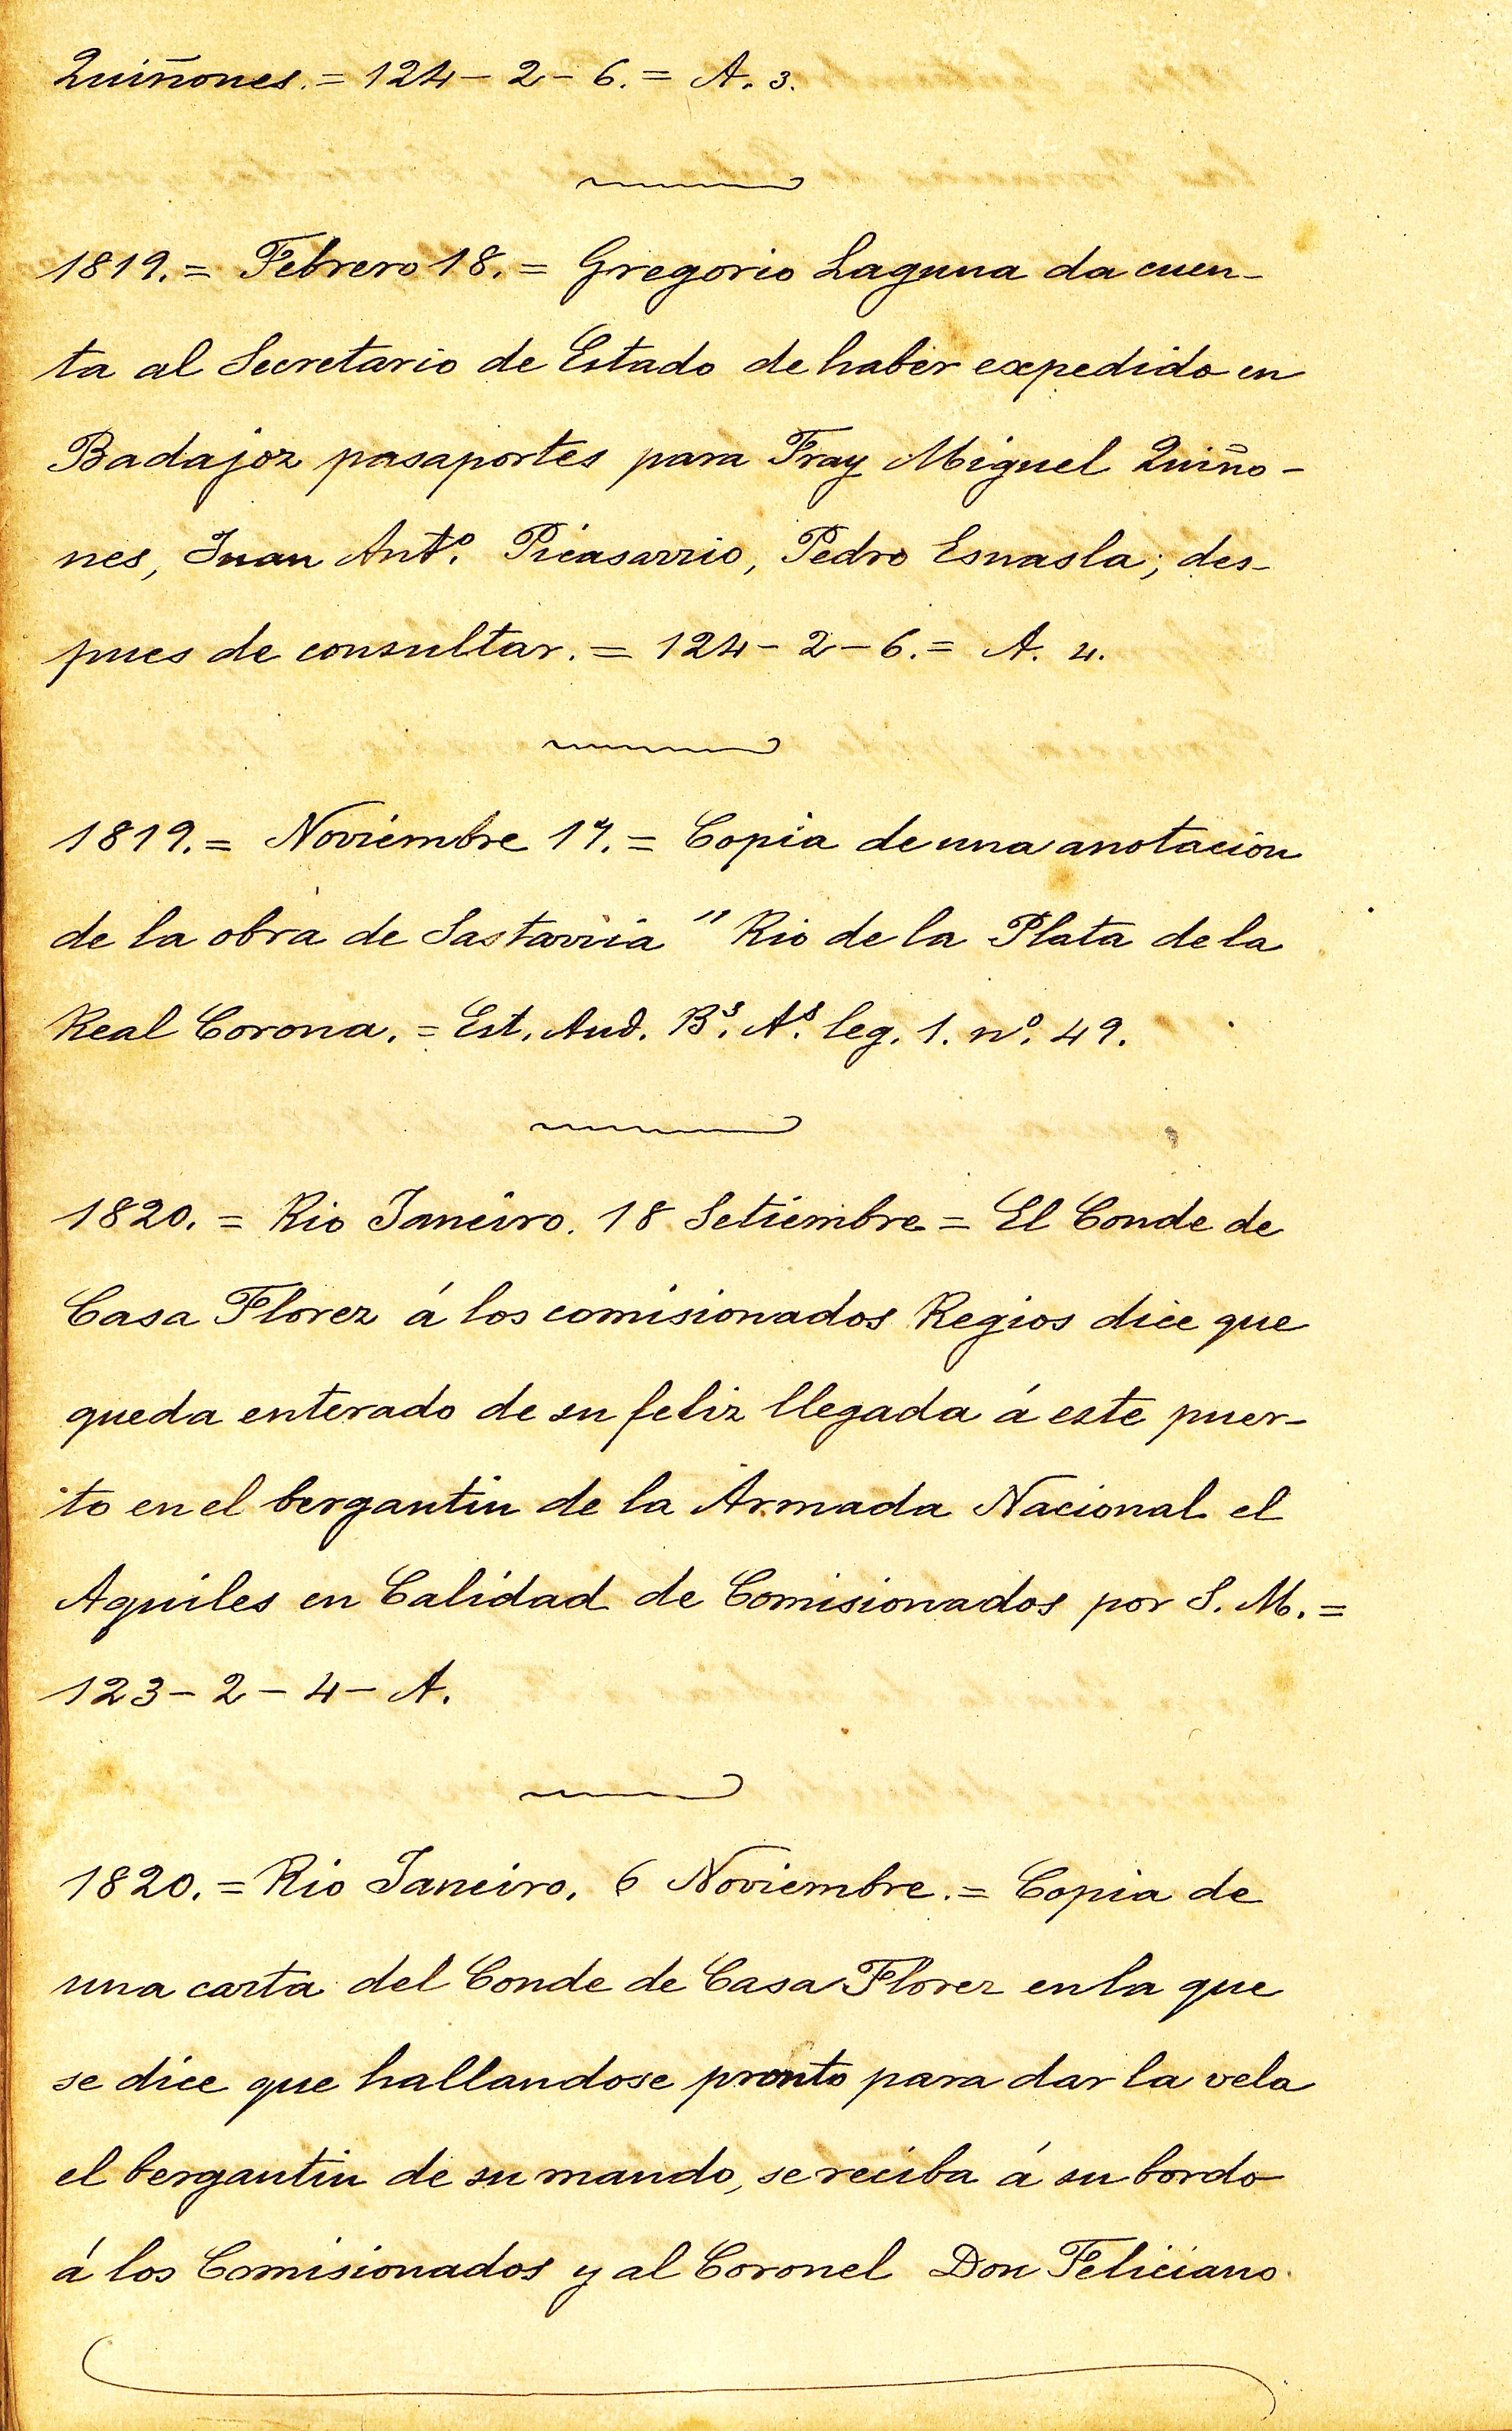 Quiñones. = 124 - 2 - 6. = A. 3.
1819. = Febrero 18. = Gregorio Laguna da cuen-
ta al Secretario de Estado de haber expedido en
Badajoz pasaportes para Fray Miguel Quiño-
nes, Juan Antº. Picasarrio, Pedro Esnasla; des-
pues de consultar. = 124 - 2 - 6. = A. 4.
1819. = Noviembre 17. = Copia de una anotacion
de la obra de Sastarria " Rio de la Plata de la
Real Corona. = Est. Aud. Bˢ. Aˢ. leg. 1. nº. 49.
1820. = Rio Janeiro. 18 Setiembre = El Conde de
Casa Florez á los comisionados Regios dice que
queda enterado de su feliz llegada á este puer-
to en el bergantin de la Armada Nacional el
Aquiles en Calidad de Comisionados por S. M. =
123 - 2 - 4 - A.
1820. = Rio Janeiro. 6 Noviembre. = Copia de
una carta del Conde de Casa Florez en la que
se dice que hallandose pronto para dar la vela
el bergantin de su mando, se reciba á su bordo
á los Comisionados y al Coronel Don Feliciano